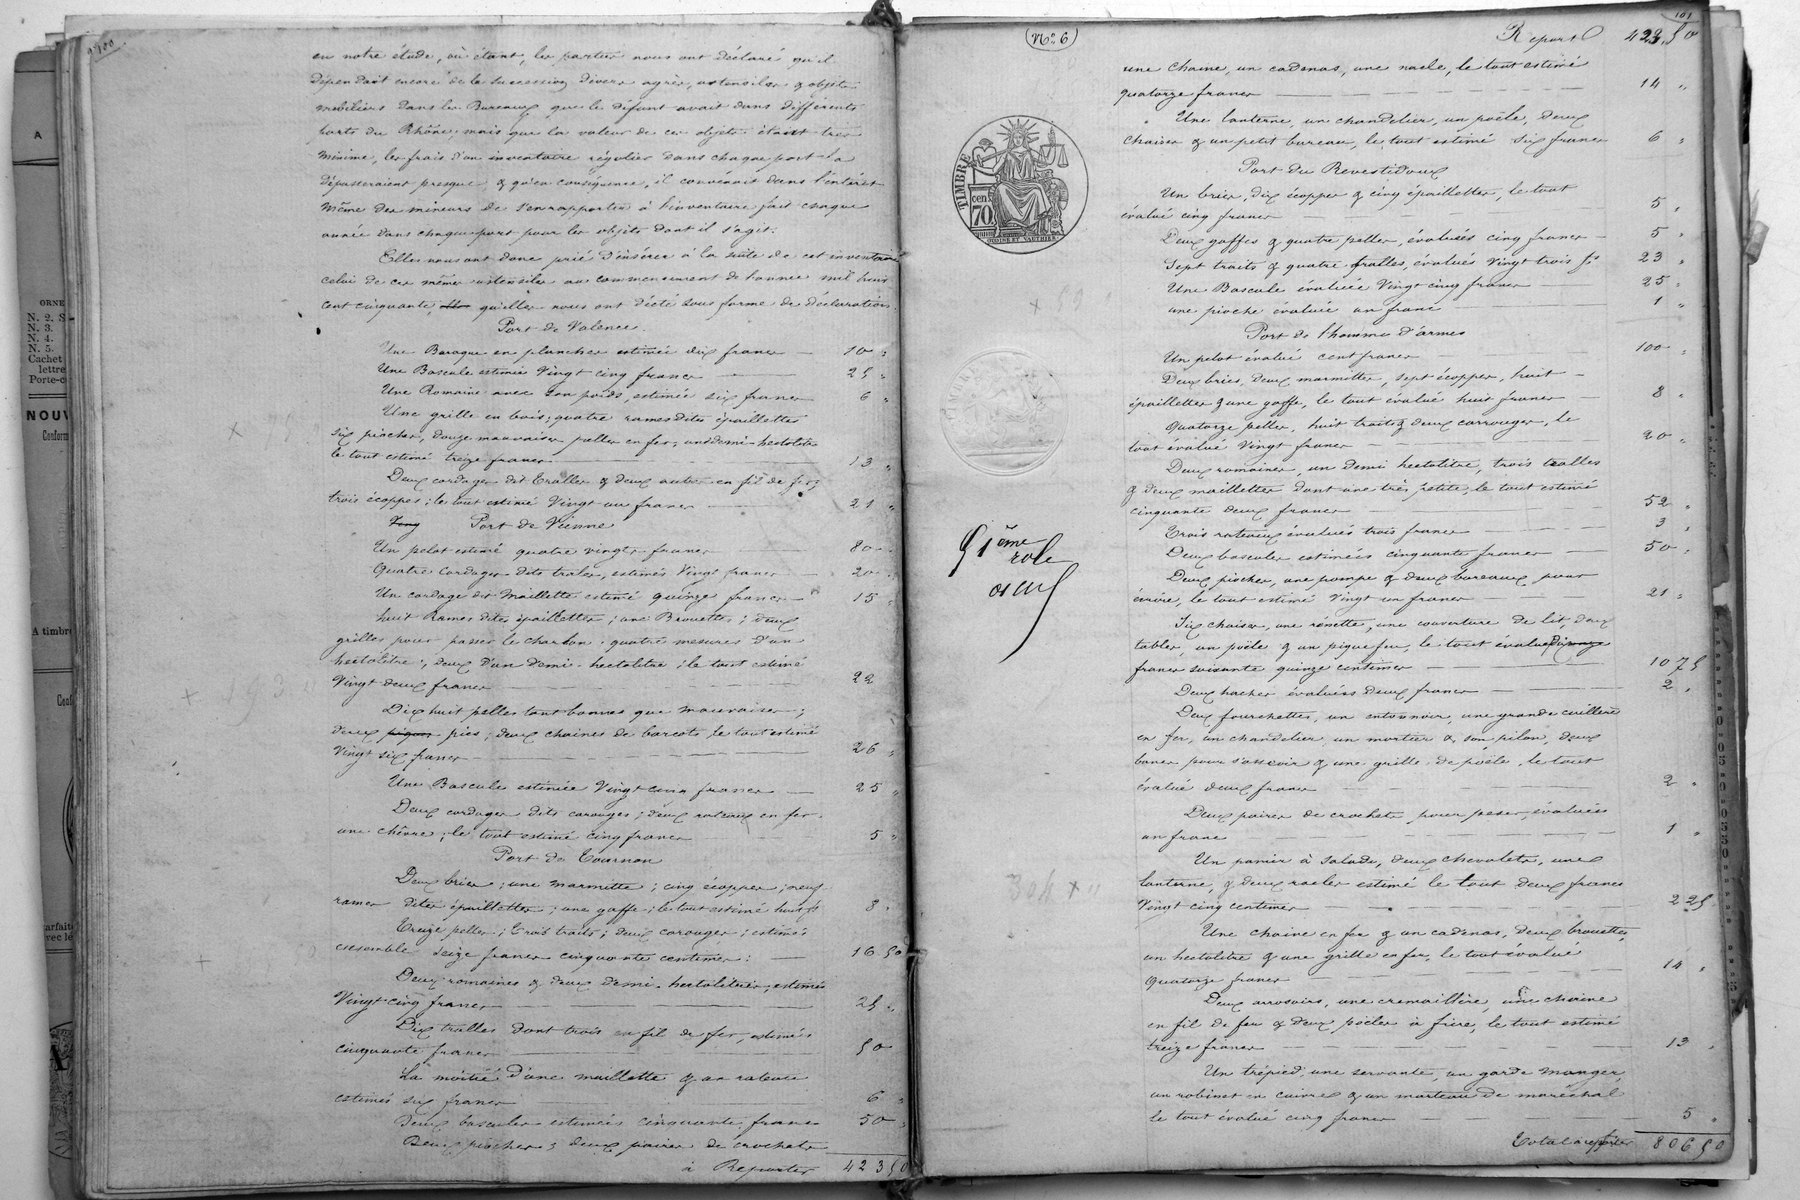 100
en notre étude, où étant, les parties nous ont déclaré qu'il
dépendait encore de la succession divers agrès, ustensiles & objets
mobiliers dans les Bureaux que le défunt avait dans différents
ports du Rhône; mais que la valeur de ces objets étant très
minime, les frais d'un inventaire régulier dans chaque port la
dépasseraient presque, & qu'en conséquence, il convenait dans l'intérêt
même des mineurs de s'en rapporter à l'inventaire fait chaque
année dans chaque port pour les objets dont il s'agit.
Elles nous ont donc prié d'insérer à la suite de cet inventaire
celui de ces mêmes ustensiles au commencement de l'année mil huit
cent cinquante, qu'elles nous ont dicté sous forme de déclaration.
Port de Valence.
Une Baraque en planches estimée dix francs — 10 "
Une Bascule estimée Vingt cinq francs — 25 "
Une Romaine avec son poids, estimée six francs 6 "
Une grille en bois; quatre rames dites épaillettes
six pioches, douze mauvaises pelles en fer; un demi-hectolitre
le tout estimé treize francs — 13 "
Deux cordages dit tralles & deux autres en fil de fer;
trois écoppes; le tout estimé Vingt un francs — 21 "
Port de Vienne
Un pelot estimé quatre vingts francs — 80 "
Quatre cordages dits trales, estimés Vingt francs — 20 "
Un cordage dit Maillette estimé quinze francs — 15 "
huit Rames dites épaillettes; une Brouettes; deux
grilles pour passer le charbon; quatre mesures d'un
hectolitre; deux d'un demi-hectolitre; le tout estimé
Vingt deux francs — 22
Dix huit pelles tant bonnes que mauvaises;
deux pics; deux chaines de barcots, le tout estimé
Vingt six francs — 26 "
Une Bascule estimée Vingt cinq francs — 25 "
Deux cordages dits carouges; deux rateaux en fer
une chèvre; le tout estimé cinq francs 5 "
Port de Tournon
Deux bries; une marmitte; cinq écoppes; neuf
rames dites épaillettes; une gaffe; le tout estimé huit f. 8 "
Treize pelles; trois traits; deux carouges; estimés
ensemble seize francs cinquante centimes: — 16 50
Deux romaines & deux demi-hectolitres, estimés
Vingt cinq francs — 25 "
Dix tralles dont trois en fil de fer, estimés
cinquante francs — 50
La moitié d'une maillette & un rateau
estimés six francs 6 "
Deux bascules estimées cinquante francs 50 "
Deux pioches & deux paires de crochets
à Reporter 423 50
N° 6
101
Report 423,50
une chaine, un cadenas, une nacle, le tout estimé
quatorze francs — 14 "
Une lanterne, un chandelier, un poële, deux
chaises & un petit bureau, le tout estimé six francs 6 "
TIMBRE
70 cen.
Port du Revestidoux
Un brier, dix écoppes & cinq épaillettes, le tout
évalué cinq francs — 5 "
Deux gaffes & quatre pelles, évaluées cinq francs — 5 "
Sept traits & quatre tralles, évalués Vingt trois fs 23 "
Une Bascule évaluée Vingt cinq francs — 25 "
une pioche évaluée un franc — 1 "
Port de l'homme d'armes
Un pelot évalué cent francs — 100 "
Deux bries, deux marmittes, sept écoppes, huit
épaillettes & une gaffe, le tout évalué huit francs — 8 "
Quatorze pelles, huit traits & deux carrouges, le
tout évalué Vingt francs — 20 "
Deux romaines, un demi hectolitre, trois tralles
& deux maillettes dont une très petite, le tout estimé
cinquante deux francs — 52 "
Trois rateaux évalués trois francs — 3 "
Deux bascules estimées cinquante francs — 50 "
Deux pioches, une pompe & deux bureaux pour
écrire, le tout estimé Vingt un francs — 21 "
51ème
role
Six chaises, une couverture de lit, deux
tables, un poële & un pique feu, le tout évalué
francs soixante quinze centimes — 10 75
Deux haches évaluées deux francs — 2 "
Deux fourchettes, un entonnoir, une grande cuillère
en fer, un chandelier, un mortier & son pilon, deux
bancs pour s'asseoir & une grille de poële, le tout
évalué deux francs — 2 "
Deux paires de crochets pour peser, évaluées
un franc — 1 "
Un panier à salade, deux chevalets, une
lanterne, & deux racles estimé le tout deux francs
Vingt cinq centimes — 2 25
Une chaine en fer & un cadenas, deux brouettes,
un hectolitre & une grille en fer, le tout évalué
Quatorze francs — 14 "
Deux arrosoirs, une cremaillère, une chaine
en fil de fer & deux poëles à frire, le tout estimé
treize francs — 13 "
Un trépied, une servante, un garde manger,
un robinet en cuivre & un marteau de maréchal
le tout évalué cinq francs — 5 "
Total à reporter 806 50